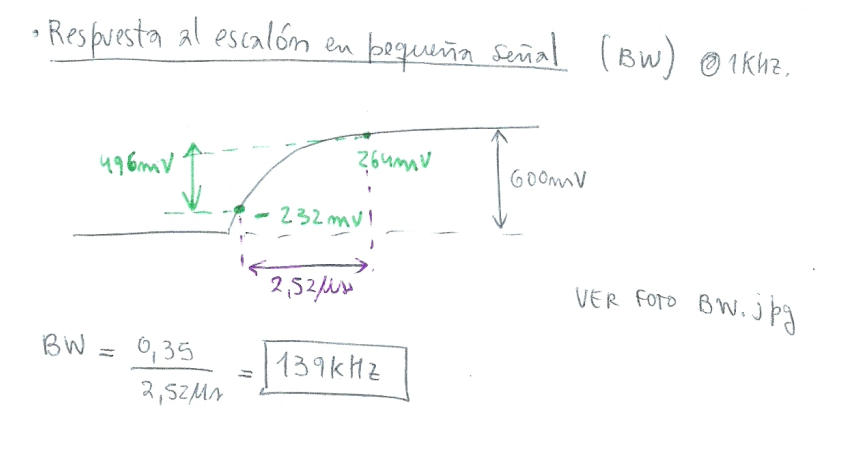 · Respuesta al escalón en pequeña señal (BW) @ 1KHz.
496mV
264mV
600mV
- 232mV
2,52μs
VER FOTO BW.jpg
BW = 0,35 / 2,52μs = 139kHz